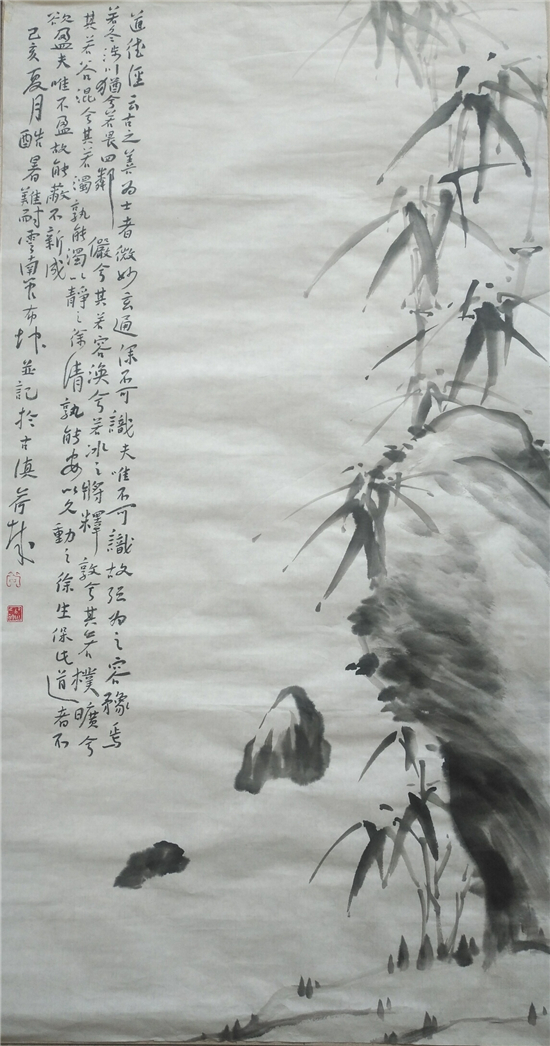 道德经云古之善为士者微妙玄通深不可識夫唯不可識故强为之容豫焉
若冬涉川犹兮若畏四鄰儼兮其若容涣兮若冰之將釋敦兮其若樸曠兮
其若谷混兮其若濁孰能濁以靜之徐清孰能安以久動之徐生保此道者不
欲盈夫唯不盈故能蔽不新成
己亥夏月酷暑難耐雲南布坤並記於古滇